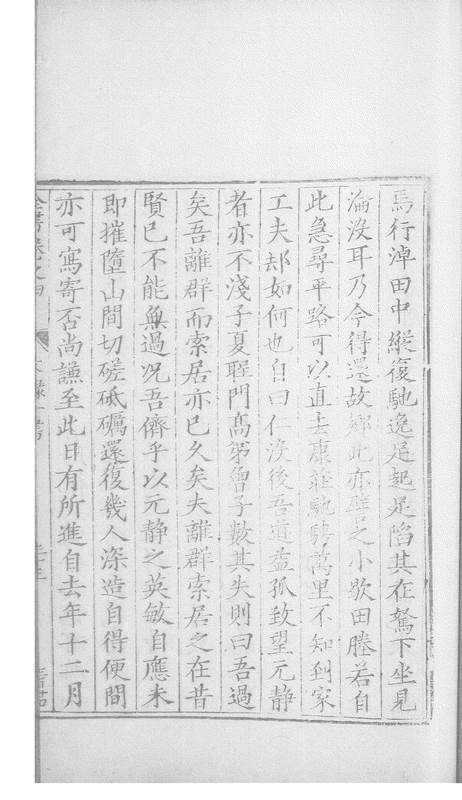 焉行淖田中縱復馳逸足起足陷其在駑下坐見
淪沒耳乃今得還故鄉此亦譬之小歇田塍若自
此急尋平路可以直去康莊馳騁萬里不知到家
工夫却如何也自曰仁沒後吾道益孤致望元静
者亦不淺子夏聖門高弟曾子數其失則曰吾過
矣吾離群而索居亦已久矣夫離群索居之在昔
賢已不能無過况吾儕乎以元静之英敏自應未
即摧墮山間切磋砥礪還復幾人深造自得便間
亦可寫寄否尚謙至此日有所進自去年十二月
全書卷之四 文錄一 書